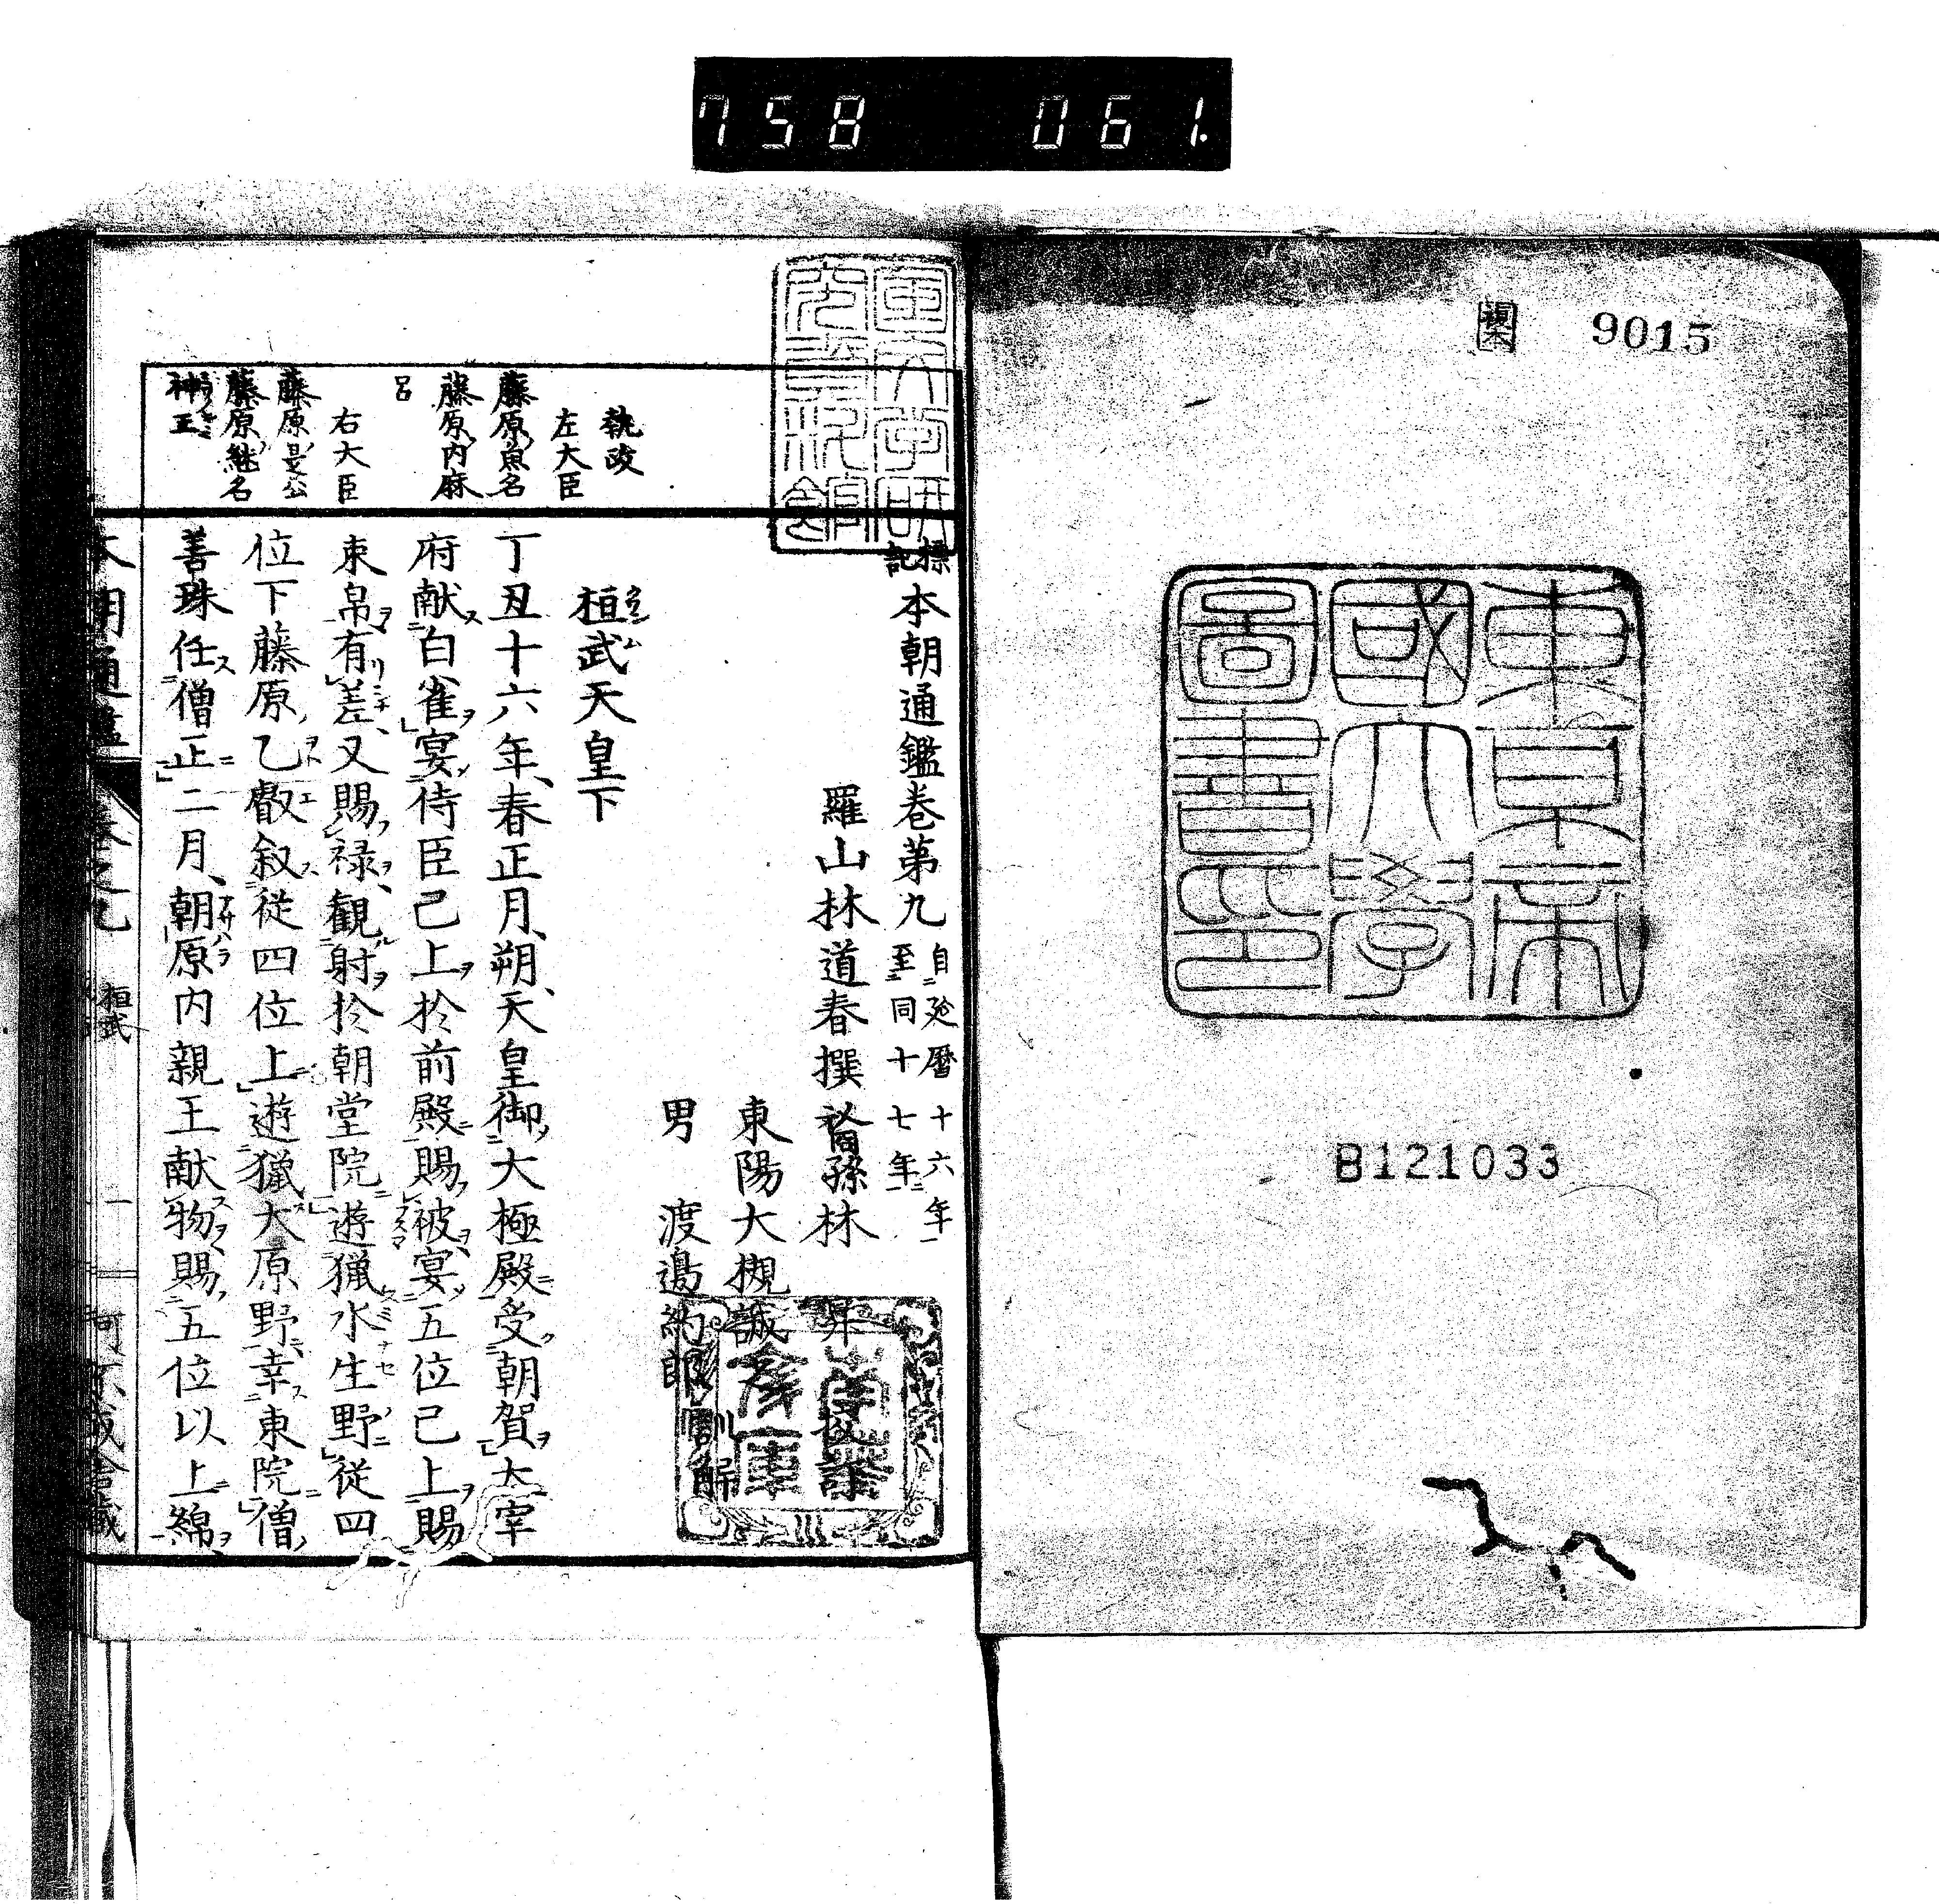 758 061.
複本
9015
東京帝
國大學
圖書印
B121033
標記 本朝通鑑卷第九 自延曆十六年 至同十七年
羅山林道春撰 裔孫林 昇 校
東陽大槻誠之
男 渡邉約郎 訓解
桓武天皇下
丁丑十六年、春正月、朔、天皇御大極殿受朝賀太宰
府献白雀宴侍臣己上於前殿賜被宴五位己上賜
束帛有差、又賜禄、觀射於朝堂院遊獵水生野從四
位下藤原乙叡叙從四位上遊獵大原野幸東院僧
善珠任僧正二月、朝原内親王献物賜五位以上綿
執政
左大臣
藤原魚名
藤原内麻
呂
右大臣
藤原是公
藤原継名
神王
本朝通鑑 卷之九 桓武 一